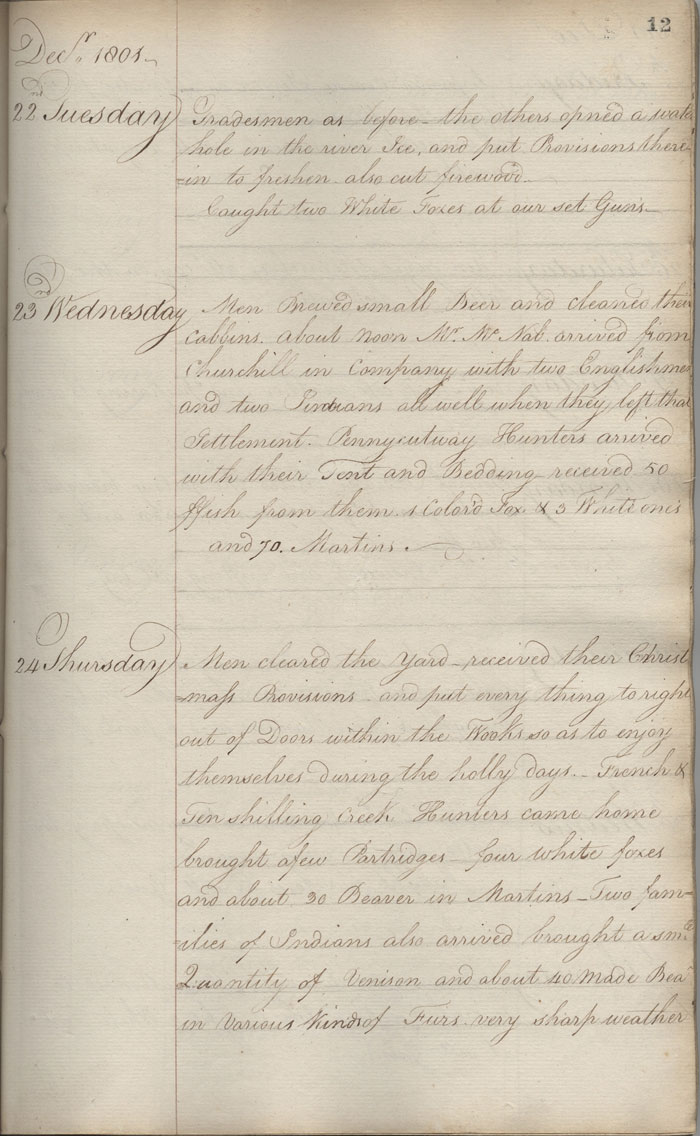 12
Decr. 1801
22nd Tuesday Tradesmen as before - the others opned a wat
hole in the river Ice, and put Provisions there
=in to freshen also cut firewood
Caught two White Foxes at our set Guns
23rd Wednesday Men Brewed small Beer and cleaned their
Cabbins. about noon Mr. Mc Nab arrived from
Churchill in Company with two Englishmen
and two Indians all well when they left that
Settlement. Pennycutway Hunters arrived
with their Tent and Bedding received 50
ffish from them 1 Color'd Fox & 3 White ones
and 70. Martins.
24 Thursday Men cleared the Yard - received their Christ
=mass Provisions and put every thing to right
out of Doors within the Wooks so as to enjoy
themselves during the holly days. - French &
Ten shilling Creek Hunters came home
brought a few Partridges four white foxes
and about 30 Beaver in Martins - Two fam=
=ilies of Indians also arrived brought a sm
Quantity of Venison and about 40 Made Bea
in Various kinds of Furs very sharp weather